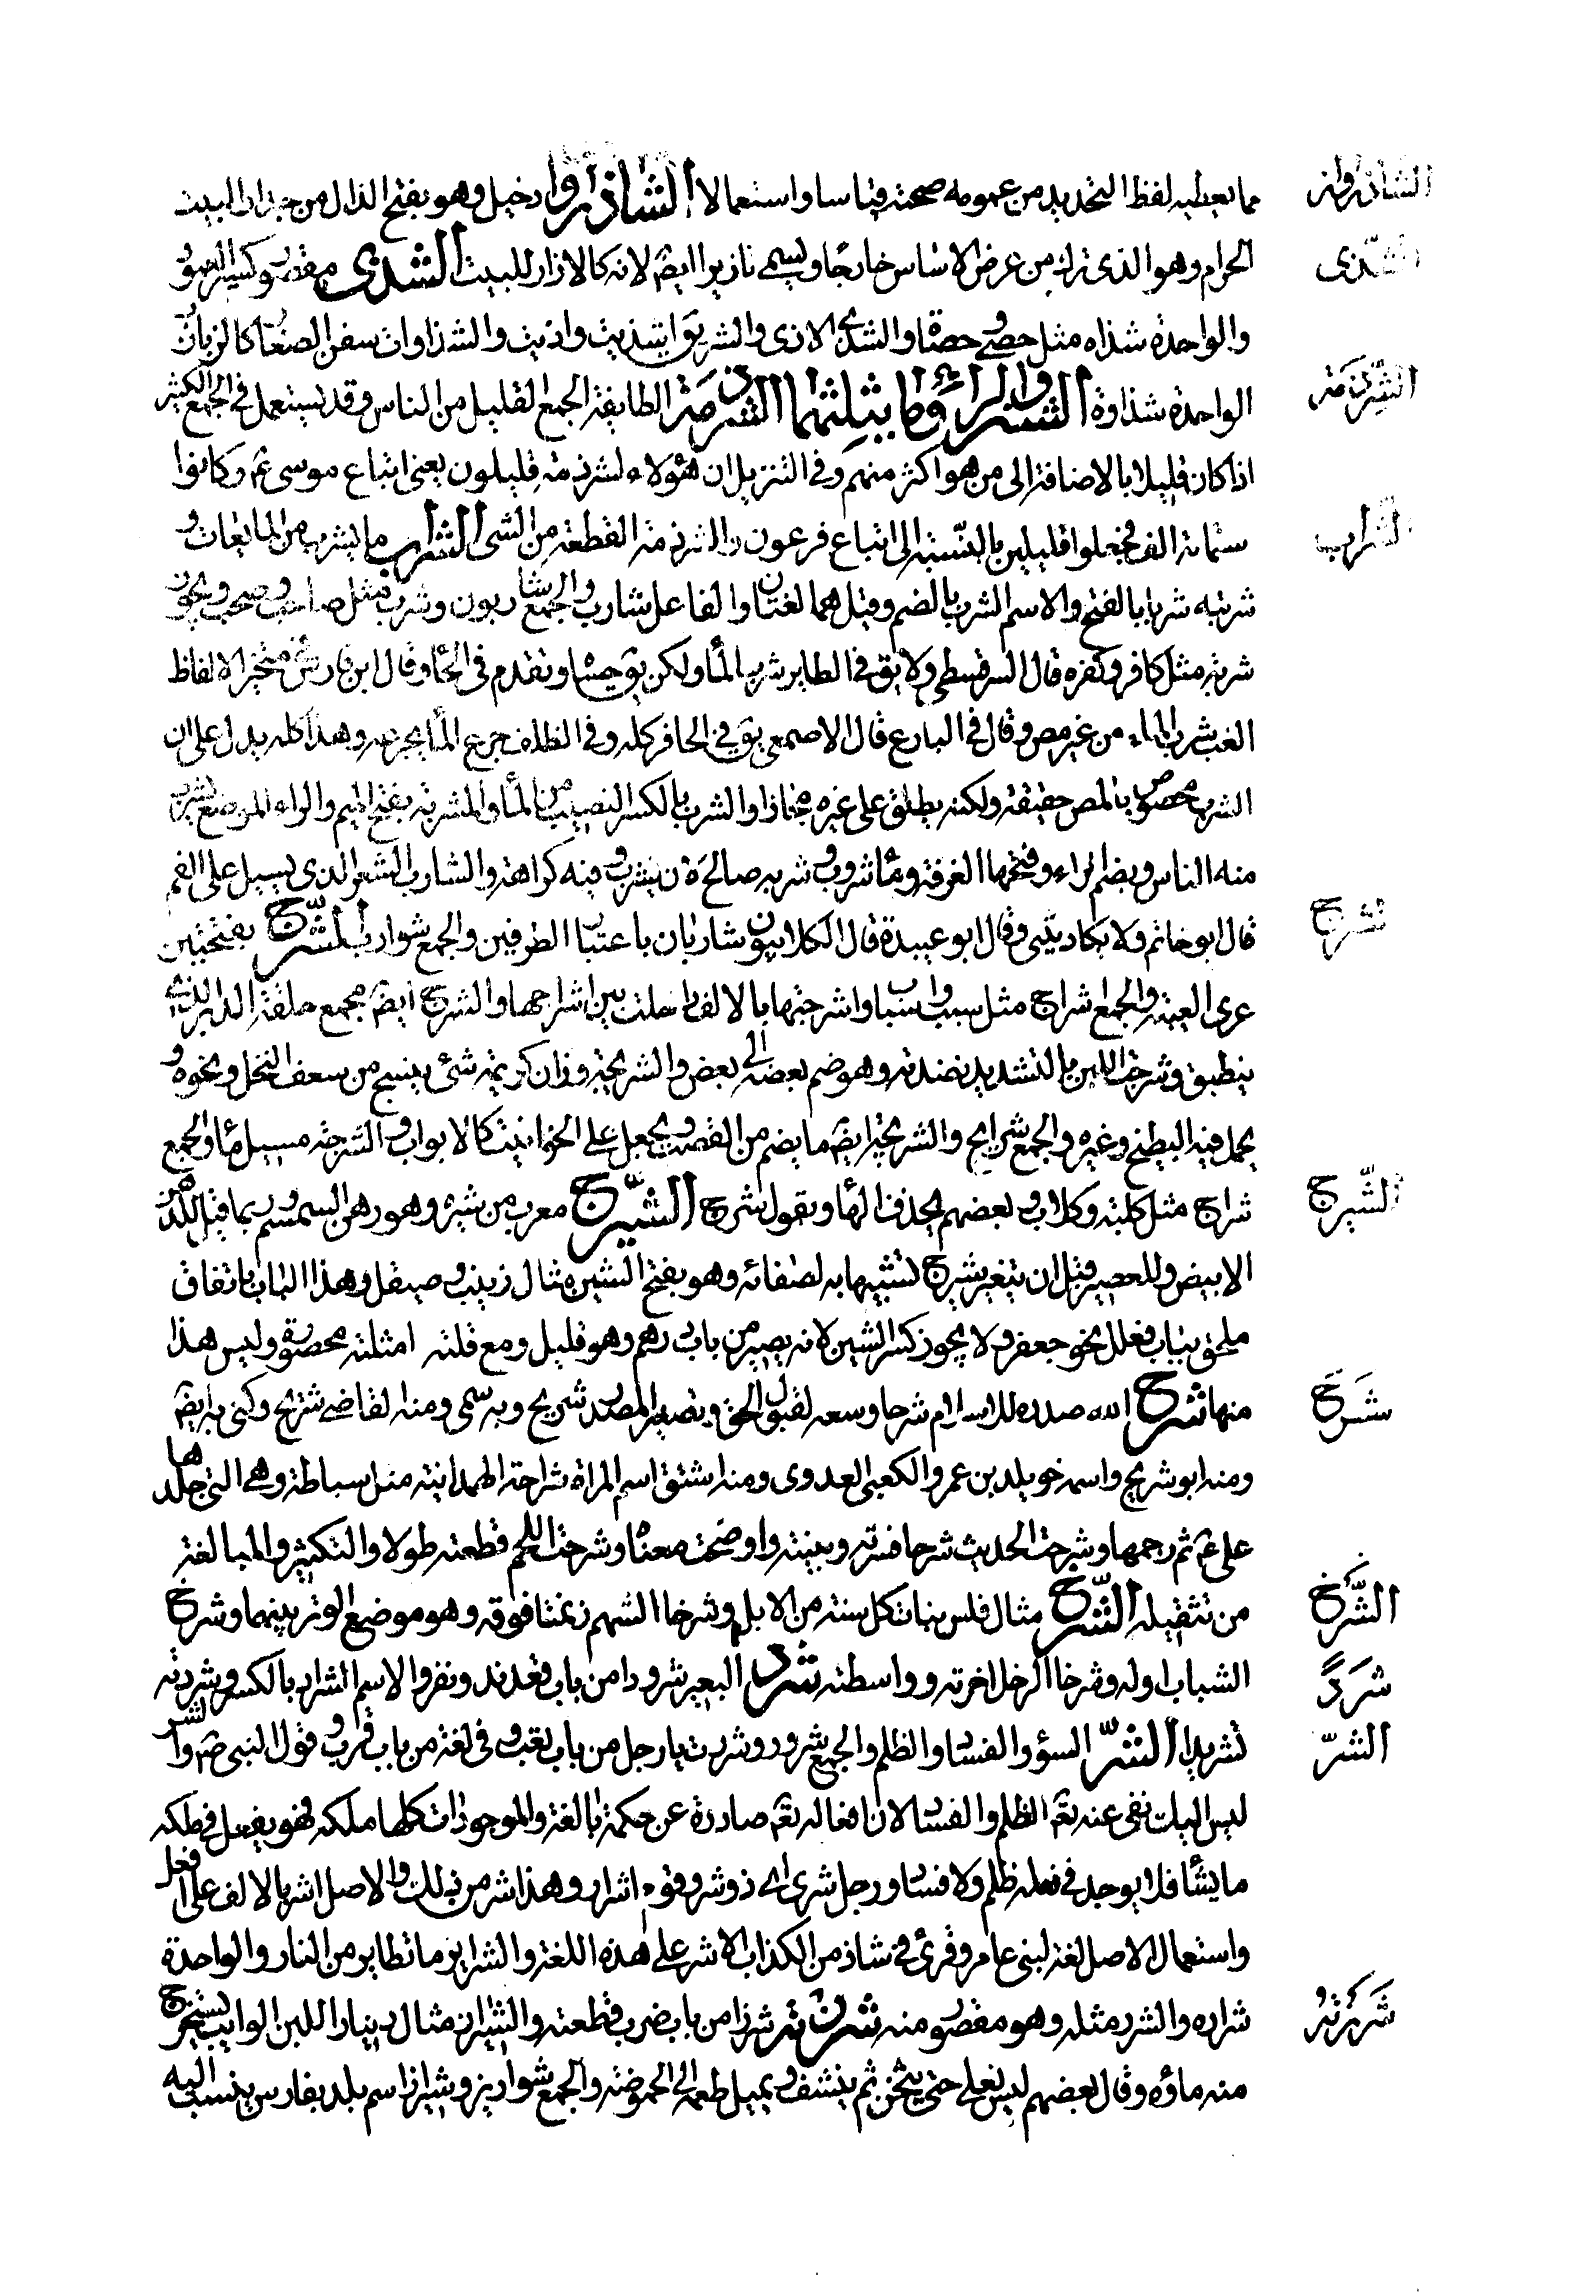 مما يعطيه لفظ التحديد من عمومه صحته قياسا واستعمالا الشاذروان دخيل وهو بفتح الذال من جدار البيت
الشاذروان
الحرام وهو الذى ترك من عرض الاساس خارجا ويسمى تازيرا ايضا لانه كالازار للبيت الشذى مقصور كسر العود
الشذى
والواحدة شذاه مثل حصى وحصاة والشذى الاذى والشر يق اشذيت واذيت والشذاوات سفن الصغار كالزبازب
الواحدة شذاوة الشين والراء وما يثلثهما الشرذمة الطايفة الجمع القليل من الناس وقد يستعمل فى الجمع الكثير
الشرذمة
اذا كان قليلا بالاضافة الى من هو اكثر منهم وفى التنزيل ان هؤلاء لشرذمة قليلون يعنى اتباع موسى عم وكانوا
ستمائة الف فجعلوا قليلين بالنسبة الى اتباع فرعون والشرذمة القطعة من الشى الشراب ما يشرب من المايعات و
الشراب
شربته شربا بالفتح والاسم الشرب بالضم وقيل هما لغتان والفاعل شارب والجمع شاربون وشرب مثل صاحب وصحب ويجوز
شربة مثل كافر وكفره قال السرقسطى ولا يق فى الطاير شرب الماء ولكن يق حسا وتقدم فى الحاء وقال ابن فارس فى متخير الالفاظ
العب شرب الماء من غير مص وقال فى البارع قال الاصمعى يق فى الحافر كله وفى الظلف جرع الماء يجرعه وهذا كله يدل على ان
الشرب مخصوص بالمص حقيقة ولكنه يطلق على غيره مجازا والشرب بالكسر النصيب من الماء والمشربة بفتح الميم والراء الموضع يشرب
منه الناس وبضم الراء وفتحها الغرفة وماء شروب وشريب صالح لان يشرب وفيه كراهة والشارب الشعر الذى يسيل على الفم
قال ابو حاتم ولا يكاد يثنى وقال ابو عبيدة قال الكلابيون شاربان باعتبار الطرفين والجمع شوارب الشرج بفتحتين
شرج
عرى العيبة والجمع اشراج مثل سبب واسباب واشرجتها بالالف داخلت بين اشراجها والشرج ايضا مجمع حلقة الدبر الذى
ينطبق وشرجت اللبن بالتشديد نضدته وهو ضم بعضه الى بعض والشريجة وزان كريمة شئ ينسج من سعف النخل ونحوه و
يحمل فيه البطيخ وغيره والجمع شرايج والشريجة ايضا ما يضم من القصب ويجعل على الحوانيت كالابواب والشرجة مسيل ماء والجمع
شراج مثل كلبة وكلاب وبعضهم يحذف الهاء ويقول شرج الشيرج معرب من شيره وهو دهن السمسم وربما قيل للدهن
الشيرج
الابيض وللعصير قبل ان يتغير شيرج تشبيها به لصفائه وهو بفتح الشين مثال زينب وصيقل وهذا الباب باتفاق
ملحق بباب فعلل نحو جعفر ولا يجوز كسر الشين لانه يصير من باب درهم وهو قليل ومع قلته امثلته محصورة وليس هذا
منها شرح الله صدره للاسلام شرحا وسعه لقبول الحق وتصغير المصدر شريح وبه سمى ومنه القاضى شريح وكنى به ايضا
شرح
ومنه ابو شريح واسمه خويلد بن عمرو الكعبى العدوى ومنه اشتق اسم المراة شراحة الهمدانية مثل سباطة وهى التى جلدها
على عم ثم رجمها وشرحت الحديث شرحا فسرته وبينته واوضحت معناه وشرحت اللحم قطعته طولا والتكثير والمبالغة
من تثقيله الشرخ مثال فلس نبات كل سنة من الابل وشرخا السهم زنمتا فوقه وهو موضع الوتر بينهما وشرخ
الشرخ
الشباب اوله وشرخا الرحل اخرته وواسطته شرد البعير شرودا من باب قعد ند ونفر والاسم الشراد بالكسر وشردته
شرد
تشريدا الشر السوء والفساد والظلم والجمع شرور وشررت يا رجل من باب تعب وفى لغة من باب قرب وقول النبى ص والشر
الشر
ليس اليك نفى عنه تع الظلم والفساد لان افعاله تع صادرة عن حكمة بالغة والموجودات كلها ملكه فهو يفعل فى ملكه
ما يشاء فلا يوجد فى فعله ظلم ولا فساد ورجل شر اى ذو شر وقوم اشرار وهذا شر من ذلك والاصل اشر بالالف على افعل
واستعمال الاصل لغة لبنى عامر وقرئ فى شاذ من الكذاب الاشر على هذه اللغة والشرار ما تطاير من النار والواحدة
شراره والشرر مثله وهو مقصور منه شرزته شرزا من باب ضرب قطعته والشيراز مثال دينار اللبن الرايب يستخرج
شرزته
منه ماؤه وقال بعضهم لبن يغلى حتى يثخن ثم ينشف ويميل طعمه الى الحموضة والجمع شواريز وشيراز اسم بلد بفارس ينسب اليه